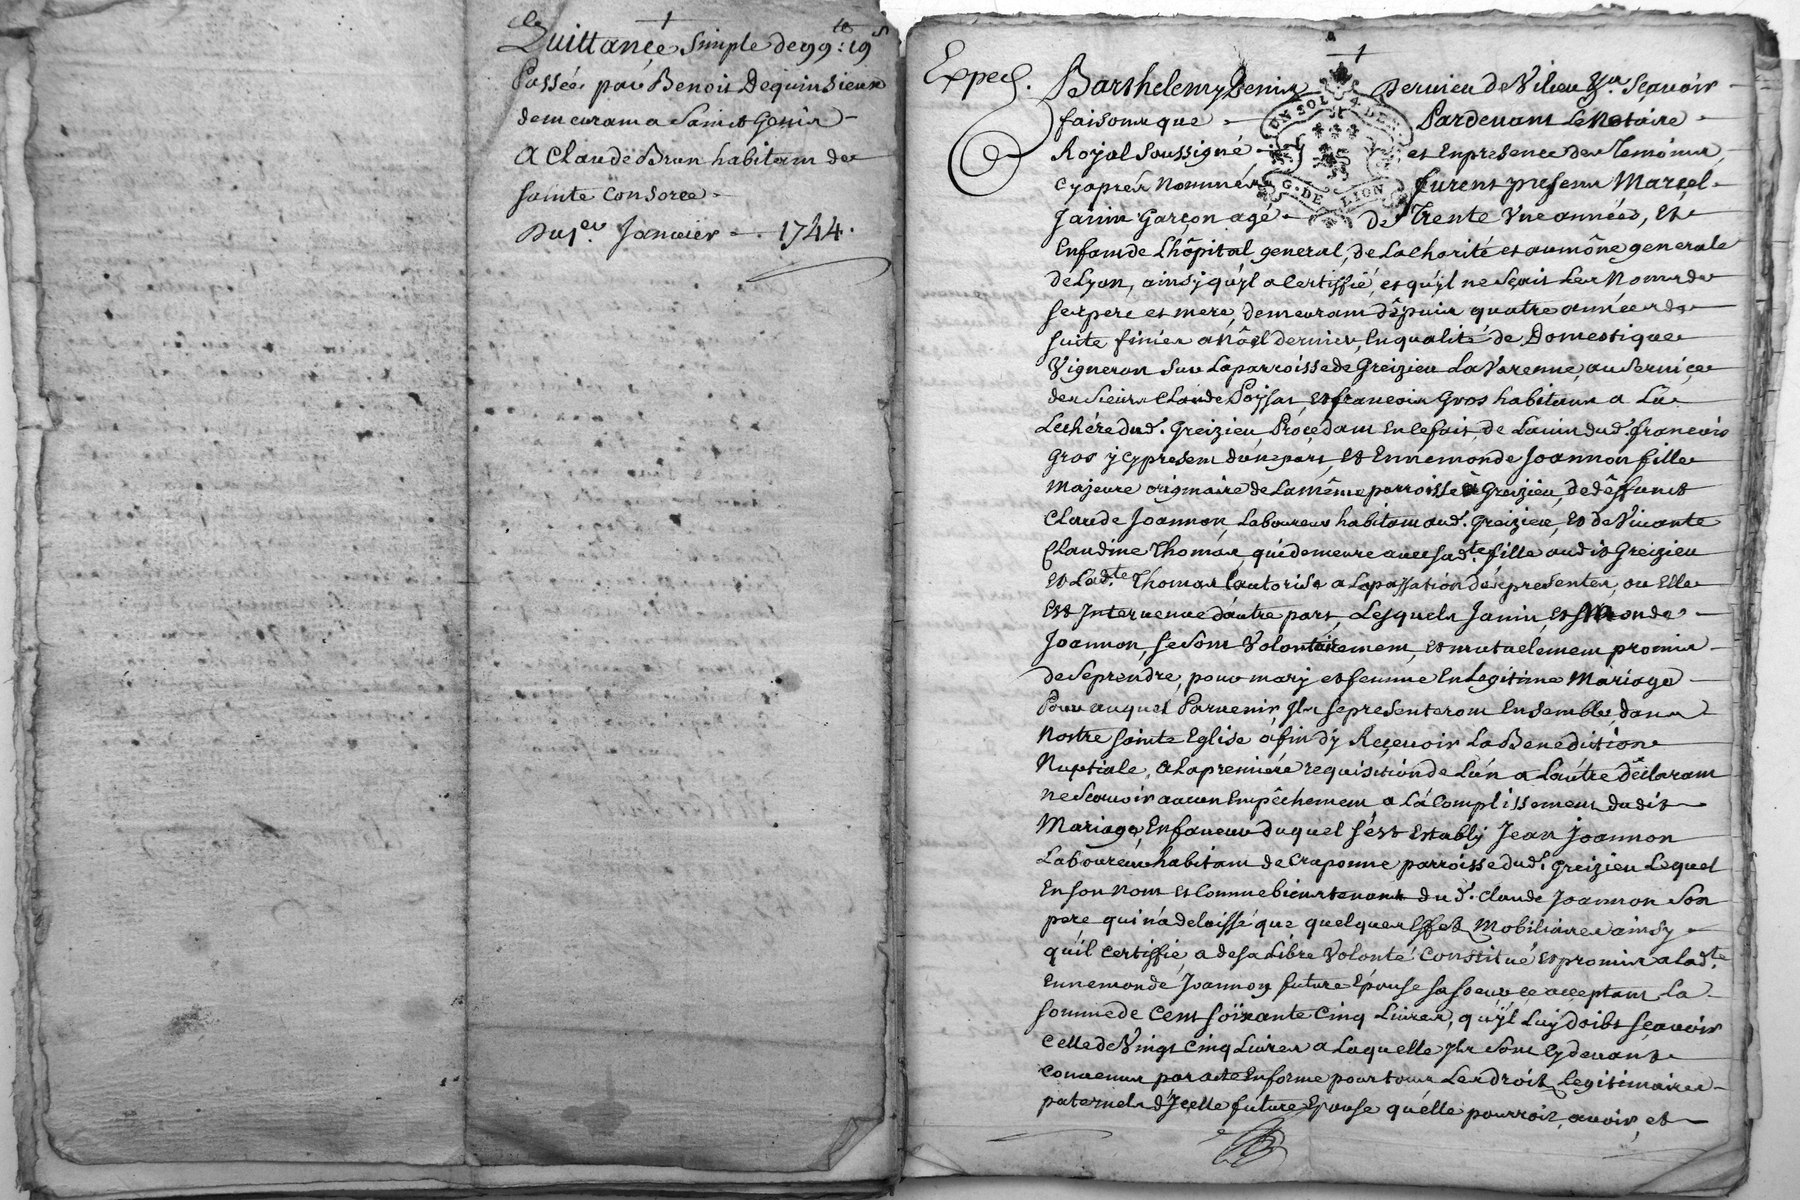 Quittance simple de 99 tt: 19 s
Passée par Benoit Dequinsieux
demeurant a Saint Genis
A Claude Brun habitant de
sainte Consorce
Du 1er Janvier 1744.
Exped.
Barthelemy Denis Dervieu de Vilieu Sçavoir
faisons que Pardevant Le Notaire
Royal soussigné et En presence des Temoins
cyaprés Nommés furent presens Marcel
Janin Garçon agé de Trente Une années, Et
Enfant de L'hôpital general, de La Charité et aumône generale
de Lyon, ainsy qu'yl a Certiffié, et qu'yl ne sçait Les Noms de
ses pere et mere, demeurant dépuis quatre années de
suite finies a Nöel dernier, En qualité de Domestique
Vigneron sur La parroisse de Greizieu La Varenne, au service
des sieurs Claude Poyssat, et francois Gros habitans a La
Lechére dud. Greizieu, Procedant En Ce fait, de L'avis dud. francois
Gros y cy present d'une part, Et Ennemonde Joannon fille
Majeure originaire de La même parroisse de Greizieu, de déffunct
Claude Joannon, Laboureur habitant aud. Greizieu, Et de Vivante
Claudine Thomas, qui demeure avec sa dte fille audit Greizieu
et Lad.te Thomas L'autorise a La passation des presentes, ou Elle
Est Intervenue d'autre part, Lesquels Janin, et Emonde
Joannon, se sont Volontairement, et mutuelement promis
de se prendre, pour mary et femme En Legitime Mariage
Pour auquel Parvenir Ils se presenteront Ensemble dans
Nostre sainte Eglise afin d'y Reçevoir La Benediction
Nuptiale, a La premiére requisition de L'un a L'autre déclarant
ne Sçavoir aucun Empêchement a L'acomplissement dudit
Mariage, En faveur duquel s'est Establÿ Jean Joannon
Laboureur habitant de Craponne parroisse dud. Greizieu Lequel
En son nom et Comme bientenant du d. Claude Joannon son
pere, qui n'a delaissé que quelques Effets Mobiliaires ainsy
qu'il certiffie, a de sa Libre Volonté Constitué et promis a lad.te
Ennemonde Joannon future Epouse sa soeur ce acceptant La
somme de Cent söixante cinq Livres, qu'yl Luy doibt sçavoir
Celle de Vingt cinq Livres a Laquelle Ils sont Cy devant
Convenus par acte En forme pour tous Les droits Legitimaires
paternels d'Icelle future Epouse qu'elle pourroit avoir, et